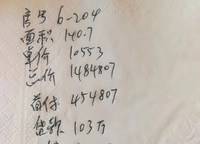 房号 6-204
面积 140.7
单价 10553
总价 1484807
首付 454807
贷款 103万